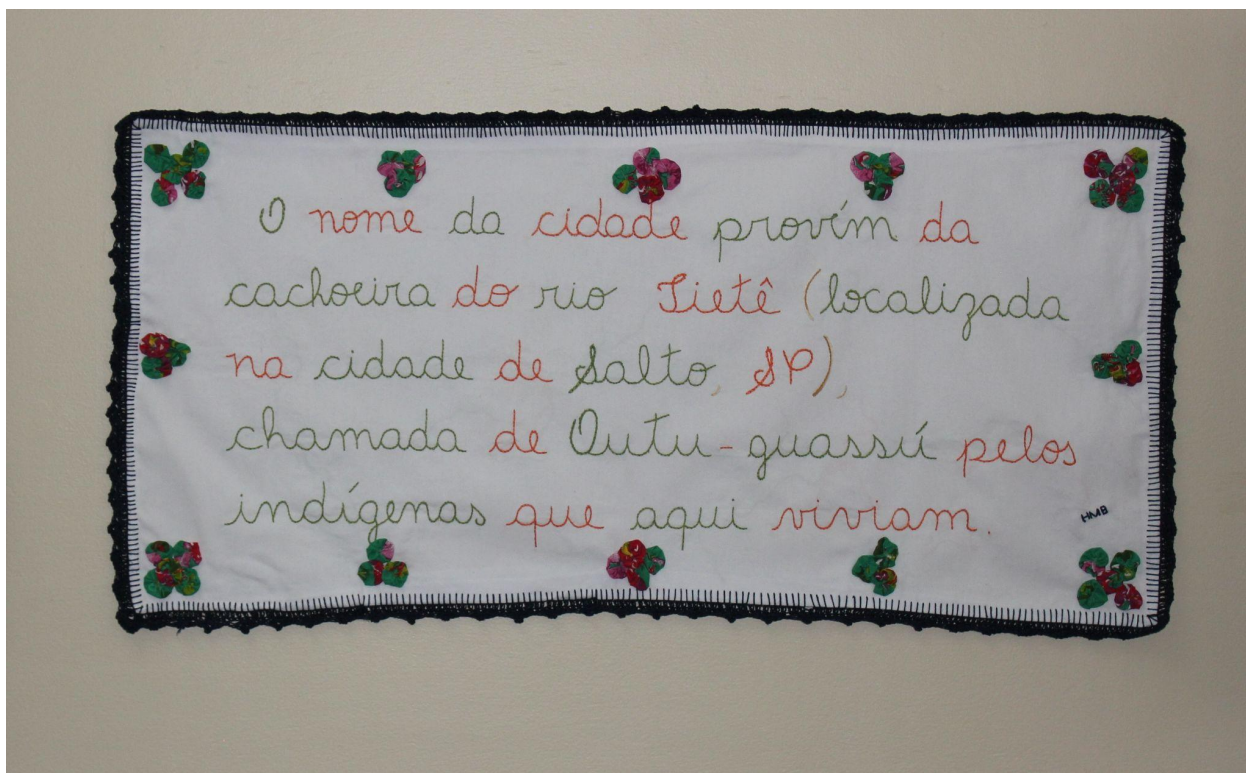 O nome da cidade provém da
cachoeira do rio Tietê (localizada
na cidade de Salto, SP),
chamada de Outu-guassú pelos
indígenas que aqui viviam.
HMB